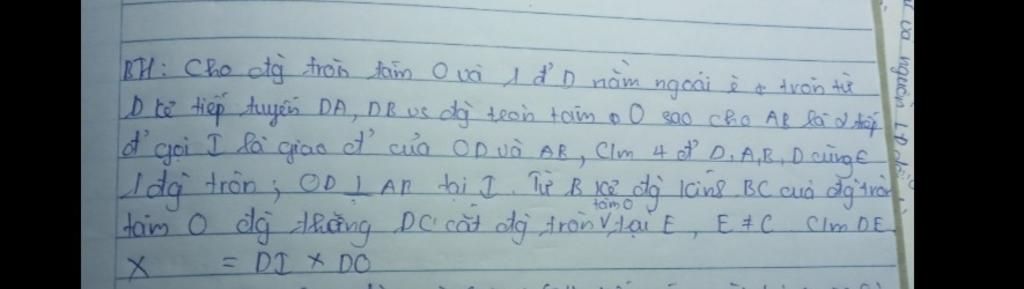 BH: Cho đg tròn tâm O và 1 đ' D nằm ngoài đg tròn từ
D kẻ tiếp tuyến DA, DB vs đg tròn tâm O sao cho AB là 2 tiếp
đ' gọi I là giao đ' của OD và AB, C/m 4 đ' D, A, B, D cùng ∈
1 đg tròn; OD ⊥ AB tại I. Từ B kẻ đg kính BC của đg tròn
tâm O đg thẳng DC cắt đg tròn tâm O tại E, E ≠ C C/m DE
X = DI x DO